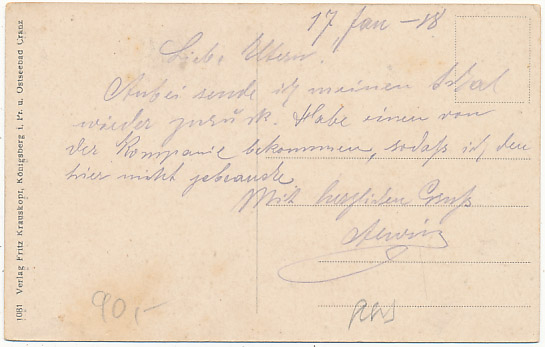 17 Jan - 18
Liebe Eltern.
Anbei sende ich meinen Schal
wieder zurück. Habe einen von
der Kompanie bekommen, sodaß ich den
hier nicht gebrauche
Mit herzlichen Gruß
90,-
1081 Verlag Fritz Krauskopf, Königsberg i. Pr. u. Ostseebad Cranz